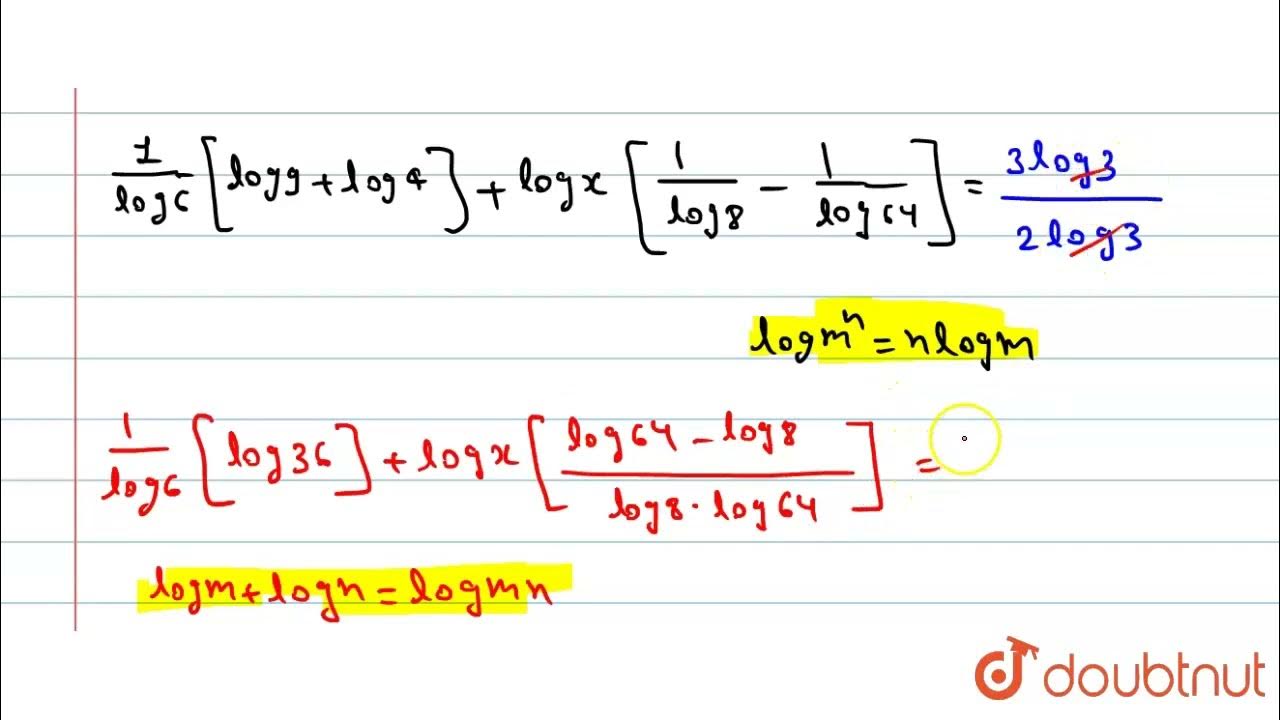 1/log6 [log9 + log4] + logx [1/log8 − 1/log64] = 3log3/2log3
logmⁿ = nlogm
1/log6 [log36] + logx [(log64 − log8)/(log8 · log64)] =
logm + logn = logmn
doubtnut